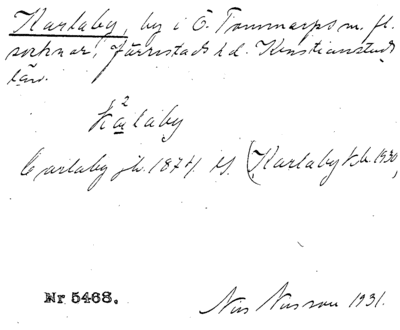 Karlaby, by i Ö. Tommarps m. fl.
socknar, Järrestads hd. Kristianstads
län.
2
kạlaby
Carlaby jb. 1874. (Karlaby tb. 1930,
Nr 5468.
Nils Nilsson 1931.